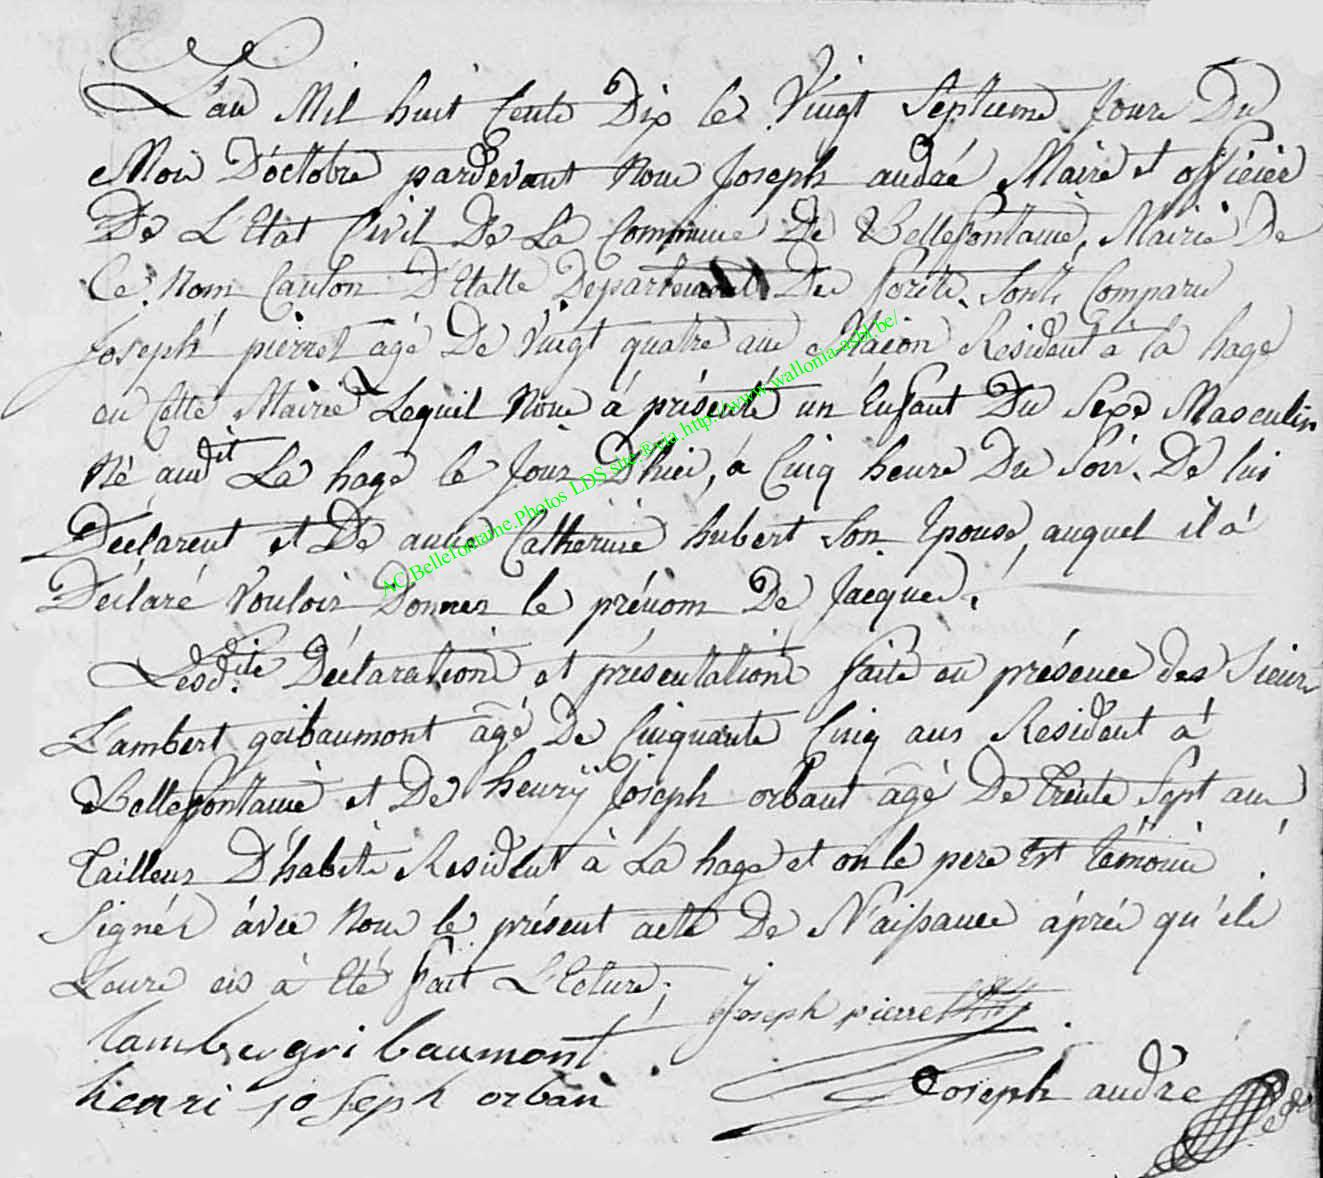 L'an Mil huit Cents Dix le Vingt Septieme Jour Du
Mois D'octobre pardevant Nous Joseph andré Maire et officier
De L'Etat Civil De La Commune De Bellefontaine, Mairie De
Ce Nom Canton D'Etalle Departement Des forets. Sont Comparu
Joseph pierret agé De Vingt quatre ans Maçon Resident à la hage
en Cette Mairie Lequel Nous à présenté un Enfant Du Sexe Masculin
Né audit La hage le Jour D'hier, à Cinq heure Du Soir. De lui
Déclarent et De anne Catherine hubert Son Epouse, auquel il à
Déclaré Vouloir Donner le prénom De Jacques.
Lesd.ite Déclaration et présentation faite en présence des Sieurs
Lambert gribaumont âgé De Cinquante Cinq ans Resident à
Bellefontaine et De henrÿ Joseph orbant âgé De trente Sept ans
Tailleur D'habits Resident à La hage et on le pere Et témoins
Signés àvec Nous le présent acte De Naissance áprés qu'il
Leure en à Eté fait L'Ecture;
Joseph pierret
Lambergribaumont
Joseph andre
henri joseph orban
AC Bellefontaine.Photos LDS site:®via.http://www.wallonia-asbl.be/